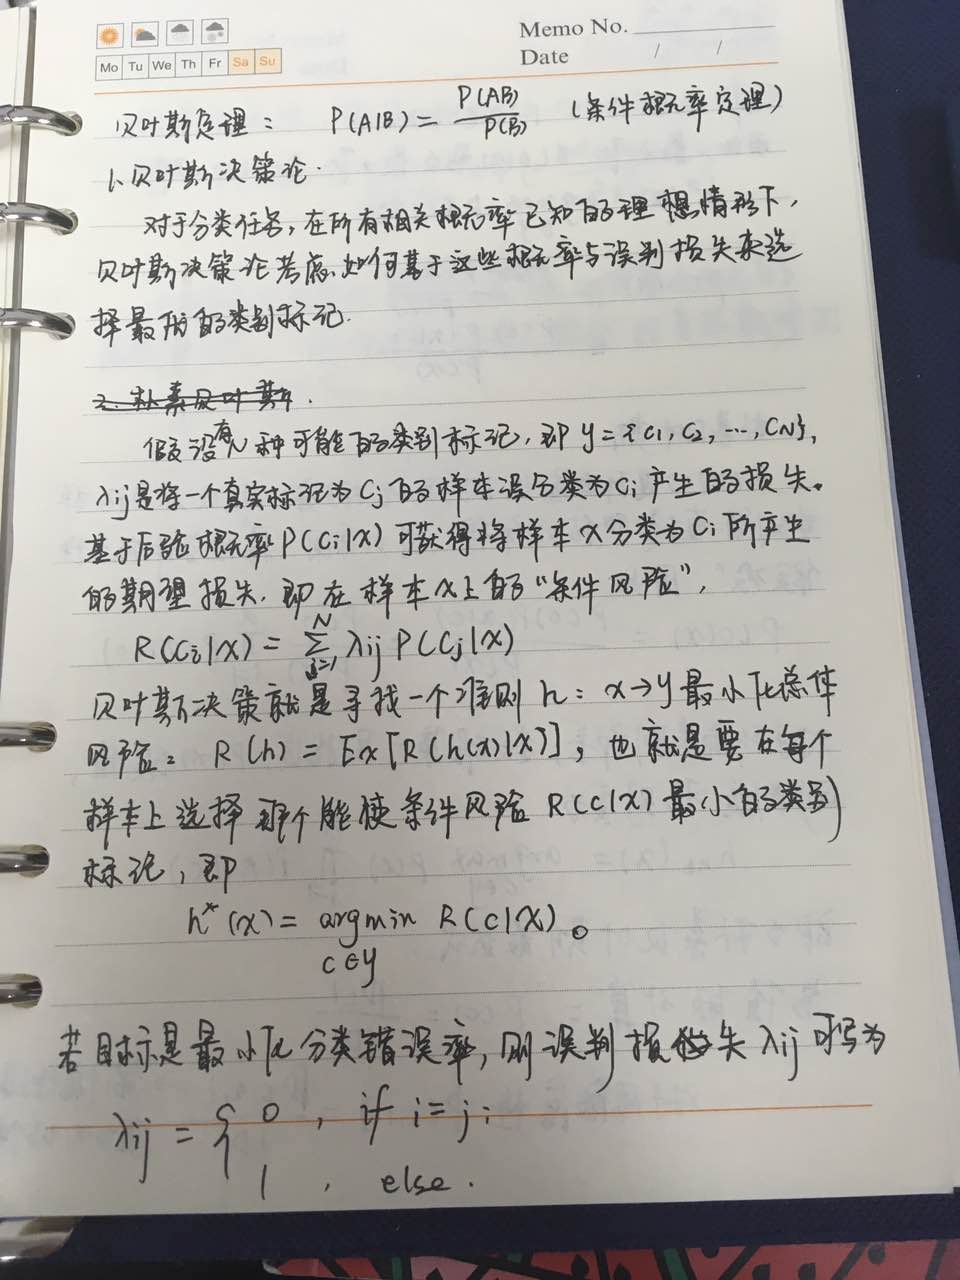 Memo No.
Mo Tu We Th Fr Sa Su
Date / /
贝叶斯定理： P(A|B) = P(AB)/P(B) (条件概率定理)
1、贝叶斯决策论.
对于分类任务，在所有相关概率已知的理想情形下，
贝叶斯决策论考虑如何基于这些概率与误判损失来选
择最优的类别标记.
2. 朴素贝叶斯.
假设有N种可能的类别标记，即 y = {c1, c2, ..., cN},
λij是将一个真实标记为cj的样本误分类为ci产生的损失。
基于后验概率P(ci|x)可获得将样本x分类为ci所产生
的期望损失，即在样本x上的“条件风险”，
R(ci|x) = ∑_{j=1}^{N} λij P(cj|x)
贝叶斯决策就是寻找一个准则 h: x→y 最小化总体
风险： R(h) = Ex[R(h(x)|x)]，也就是要在每个
样本上选择那个能使条件风险 R(c|x) 最小的类别
标记，即
h*(x) = argmin R(c|x)。
c∈y
若目标是最小化分类错误率，则误判损失λij可写为
λij = { 0 , if i = j;
1 , else.